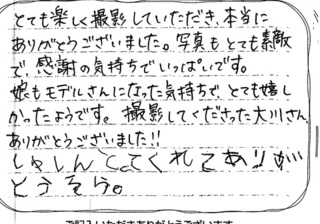 とても楽しく撮影していただき、本当に
ありがとうございました。写真もとても素敵
で、感謝の気持ちでいっぱいです。
娘もモデルさんになった気持ちで、とても嬉し
かったようです。撮影してくださった大川さん、
ありがとうございました!!
しゃしんとってくれてありが
とうそら。
ご記入いただきありがとうございます